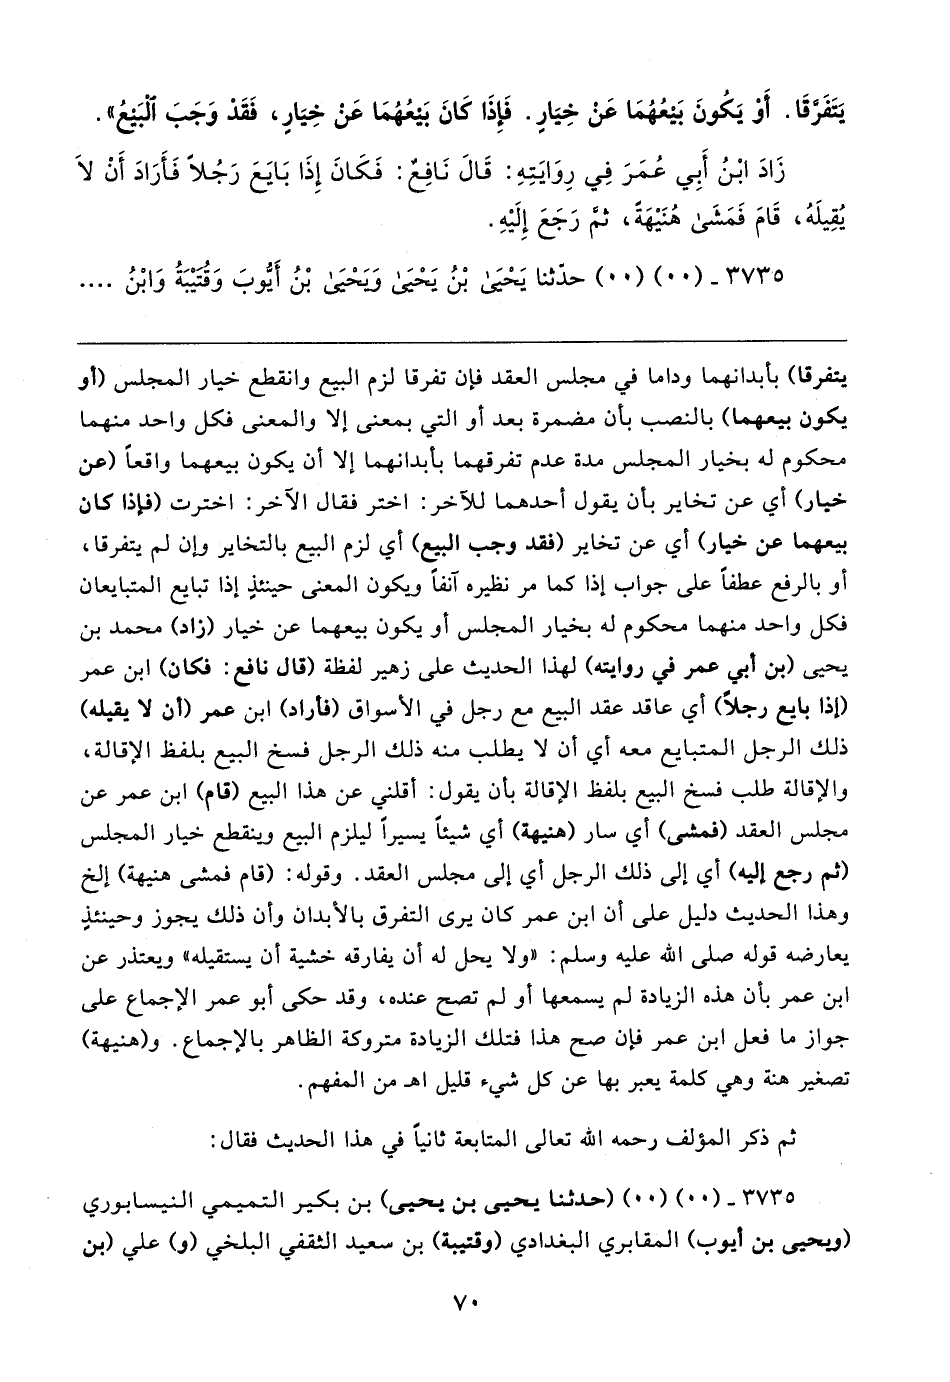 يَتَفَرَّقَا. أَوْ يَكُونَ بَيْعُهُمَا عَنْ خِيَارٍ. فَإِذَا كَانَ بَيْعُهُمَا عَنْ خِيَارٍ، فَقَدْ وَجَبَ الْبَيْعُ».
زَادَ ابْنُ أَبِي عُمَرَ فِي رِوَايَتِهِ: قَالَ نَافِعٌ: فَكَانَ إِذَا بَايَعَ رَجُلاً فَأَرَادَ أَنْ لاَ
يُقِيلَهُ، قَامَ فَمَشَىٰ هُنَيْهَةً، ثُمَّ رَجَعَ إِلَيْهِ.
٣٧٣٥ ـ (٠٠) (٠٠) حدّثنا يَحْيَىٰ بْنُ يَحْيَىٰ وَيَحْيَىٰ بْنُ أَيُّوبَ وَقُتَيْبَةُ وَابْنُ ....
يتفرقا) بأبدانهما وداما في مجلس العقد فإن تفرقا لزم البيع وانقطع خيار المجلس (أو
يكون بيعهما) بالنصب بأن مضمرة بعد أو التي بمعنى إلا والمعنى فكل واحد منهما
محكوم له بخيار المجلس مدة عدم تفرقهما بأبدانهما إلا أن يكون بيعهما واقعاً (عن
خيار) أي عن تخاير بأن يقول أحدهما للآخر: اختر فقال الآخر: اخترت (فإذا كان
بيعهما عن خيار) أي عن تخاير (فقد وجب البيع) أي لزم البيع بالتخاير وإن لم يتفرقا،
أو بالرفع عطفاً على جواب إذا كما مر نظيره آنفاً ويكون المعنى حينئذٍ إذا تبايع المتبايعان
فكل واحد منهما محكوم له بخيار المجلس أو يكون بيعهما عن خيار (زاد) محمد بن
يحيى (بن أبي عمر في روايته) لهذا الحديث على زهير لفظة (قال نافع: فكان) ابن عمر
(إذا بايع رجلاً) أي عاقد عقد البيع مع رجل في الأسواق (فأراد) ابن عمر (أن لا يقيله)
ذلك الرجل المتبايع معه أي أن لا يطلب منه ذلك الرجل فسخ البيع بلفظ الإقالة،
والإقالة طلب فسخ البيع بلفظ الإقالة بأن يقول: أقلني عن هذا البيع (قام) ابن عمر عن
مجلس العقد (فمشى) أي سار (هنيهة) أي شيئاً يسيراً ليلزم البيع وينقطع خيار المجلس
(ثم رجع إليه) أي إلى ذلك الرجل أي إلى مجلس العقد. وقوله: (قام فمشى هنيهة) إلخ
وهذا الحديث دليل على أن ابن عمر كان يرى التفرق بالأبدان وأن ذلك يجوز وحينئذٍ
يعارضه قوله صلى الله عليه وسلم: «ولا يحل له أن يفارقه خشية أن يستقيله» ويعتذر عن
ابن عمر بأن هذه الزيادة لم يسمعها أو لم تصح عنده، وقد حكى أبو عمر الإجماع على
جواز ما فعل ابن عمر فإن صح هذا فتلك الزيادة متروكة الظاهر بالإجماع. و(هنيهة)
تصغير هنة وهي كلمة يعبر بها عن كل شيء قليل اهـ من المفهم.
ثم ذكر المؤلف رحمه الله تعالى المتابعة ثانياً في هذا الحديث فقال:
٣٧٣٥ ـ (٠٠) (٠٠) (حدثنا يحيى بن يحيى) بن بكير التميمي النيسابوري
(ويحيى بن أيوب) المقابري البغدادي (وقتيبة) بن سعيد الثقفي البلخي (و) علي (بن
٧٠